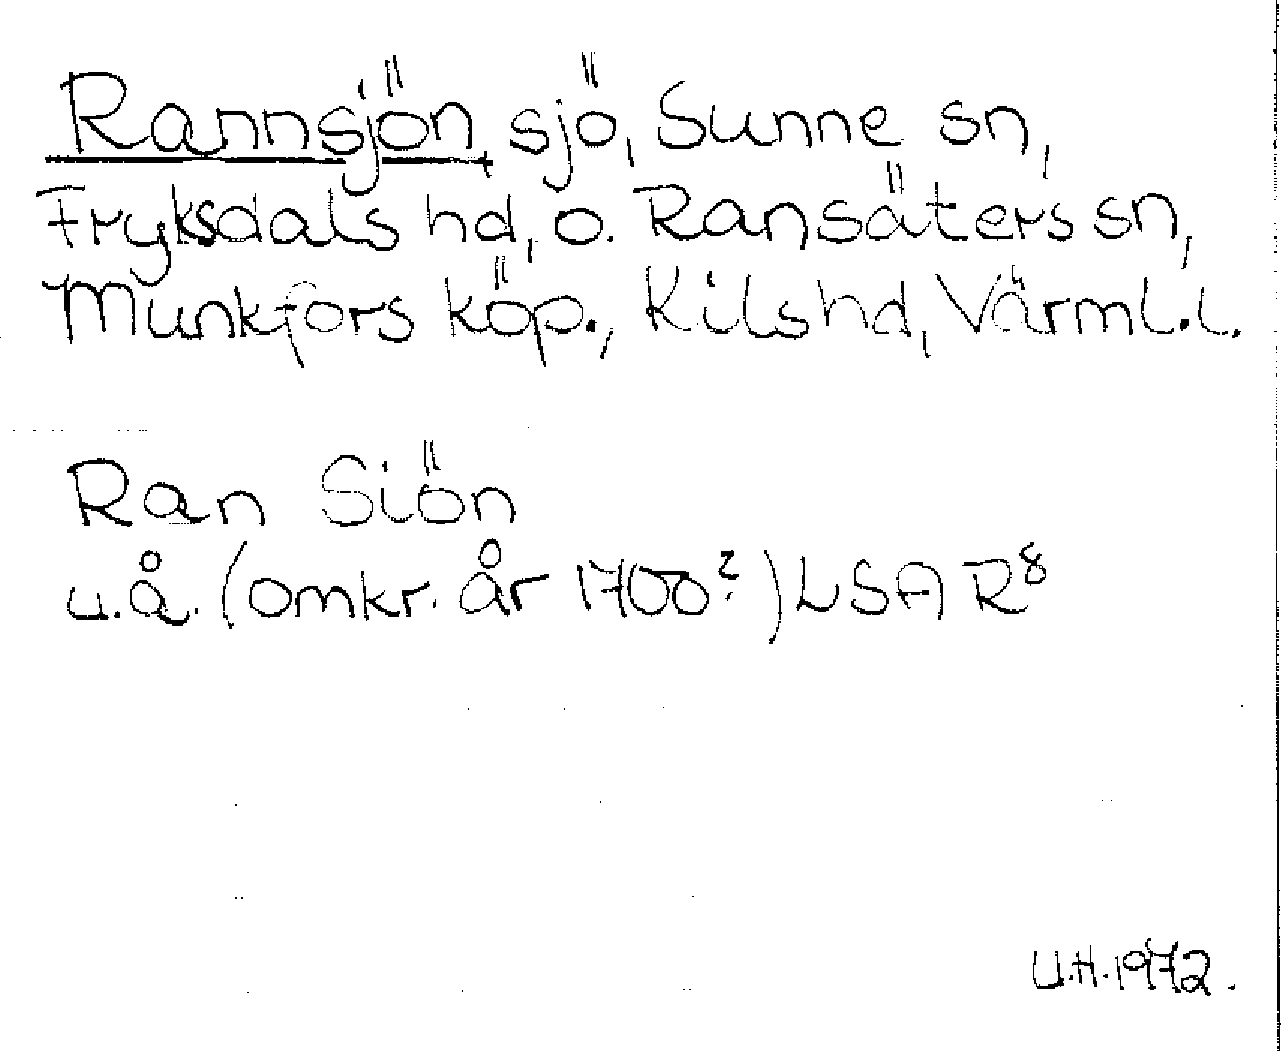 Rannsjön, sjö, Sunne sn,
Fryksdals hd, o. Ransäters sn,
Munkfors köp., Kils hd, Värml. l.
Ran Siön
u.å. (omkr. år 1700?) LSA R8
U.H. 1972.